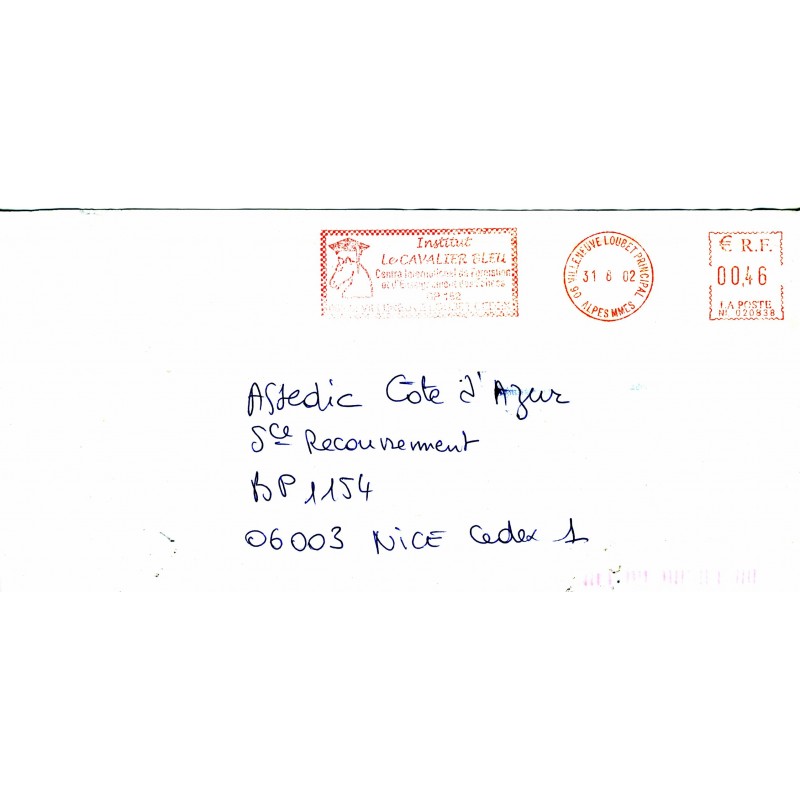 Institut
Le CAVALIER BLEU
Centre International de Formation
BP 162
06 VILLENEUVE LOUBET PRINCIPAL
31 8 02
ALPES MMES
€ R.F.
00,46
LA POSTE
NL 020838
Assedic Côte d'Azur
Sce Recouvrement
BP 1154
06003 NICE Cedex 1